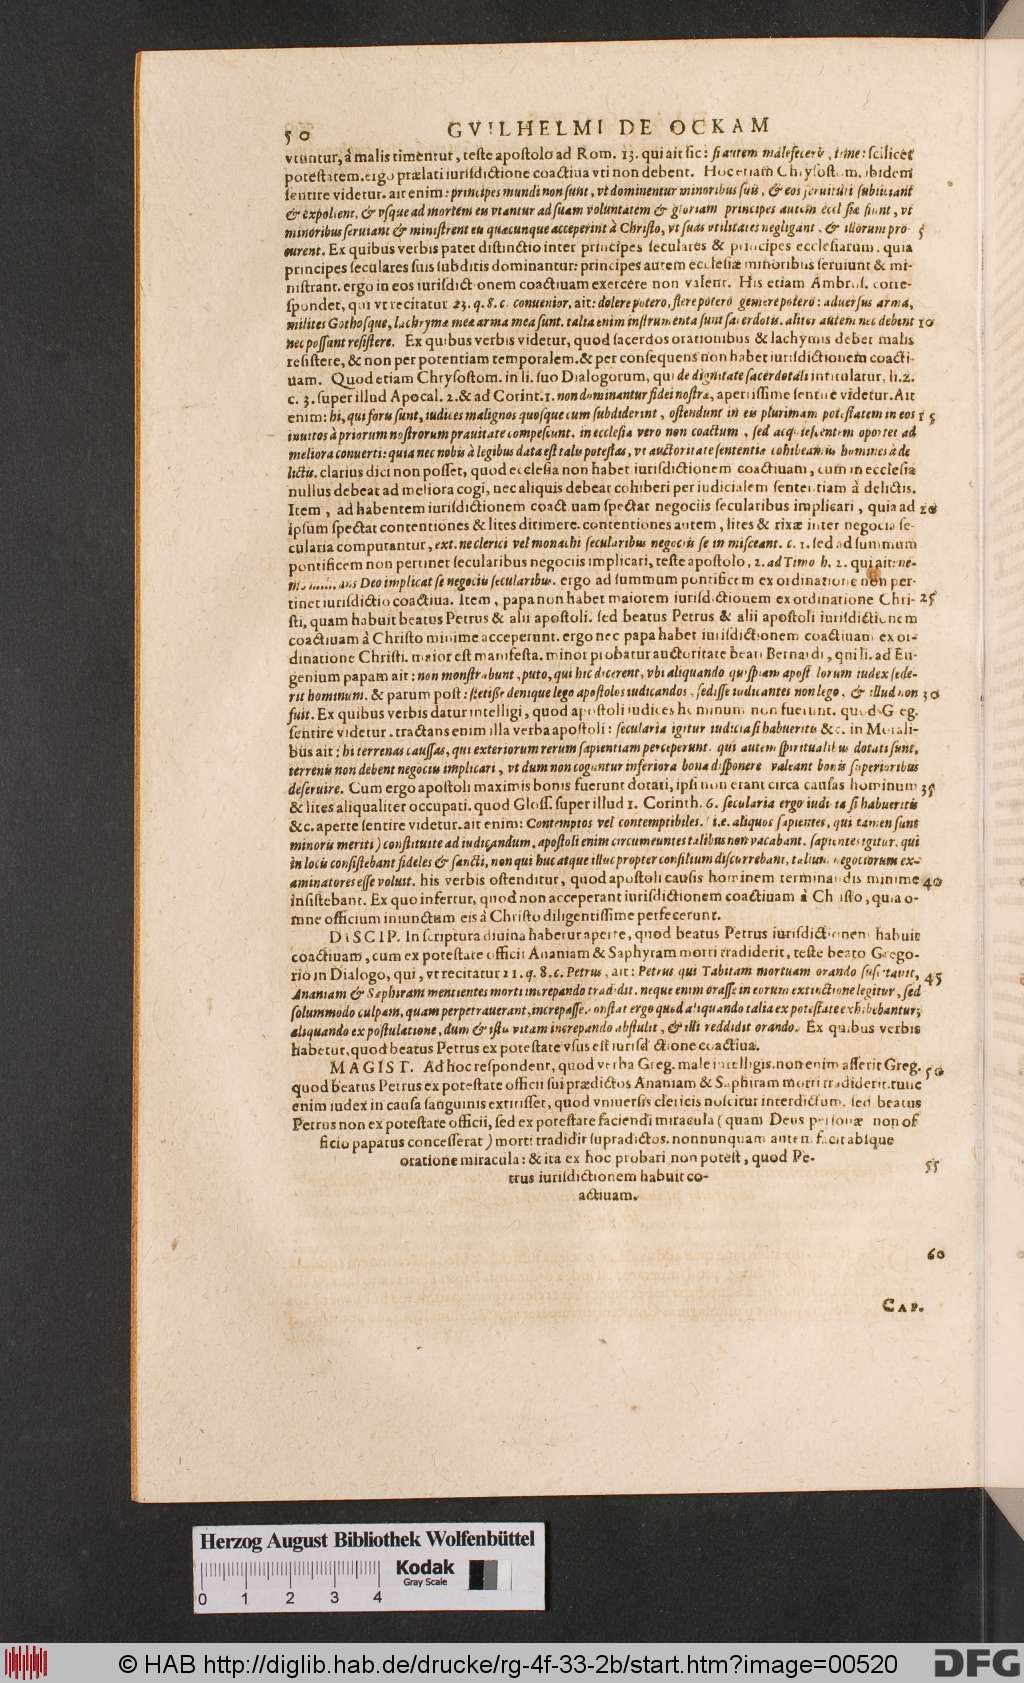 50 GVILHELMI DE OCKAM
vtuntur, à malis timentur, teste apostolo ad Rom. 13. qui ait sic: si autem malefeceris, time: scilicet
potestatem. ergo prælati iurisdictione coactiua vti non debent. Hoc etiam Chrysostom. ibidem
sentire videtur. ait enim: principes mundi non sunt, vt dominentur minoribus suis, & eos seruituti subiiciant
& expolient, & vsque ad mortem eis vtantur ad suam voluntatem & gloriam principes autem ecclesiæ fiunt, vt
minoribus seruiant & ministrent eis quæcunque acceperint à Christo, vt suas vtilitates negligant, & illorum pro- 5
curent. Ex quibus verbis patet distinctio inter principes seculares & principes ecclesiarum. quia
principes seculares suis subditis dominantur: principes autem ecclesiæ minoribus seruiunt & mi-
nistrant. ergo in eos iurisdictionem coactiuam exercere non valent. His etiam Ambros. corre-
spondet, qui vt recitatur 23. q. 8. c. conuenior, ait: dolere potero, flere potero gemere potero: aduersus arma,
milites Gothosque, lachrymæ meæ arma mea sunt. talia enim instrumenta sunt sacerdotis. aliter autem nec debent 10
nec possunt resistere. Ex quibus verbis videtur, quod sacerdos orationibus & lachymis debet malis
resistere, & non per potentiam temporalem. & per consequens non habet iurisdictionem coacti-
uam. Quod etiam Chrysostom. in li. suo Dialogorum, qui de dignitate sacerdotali intitulatur, li. 2.
c. 3. super illud Apocal. 2. & ad Corint. 1. non dominantur fidei nostræ, apertissime sentire videtur. Ait
enim: hi, qui foris sunt, iudices malignos quosque cum subdiderint, ostendunt in eis plurimam potestatem in eos 15
inuitos à priorum nostrorum prauitate compescunt. in ecclesia vero non coactum, sed acquiescentem oportet ad
meliora conuerti: quia nec nobis à legibus data est talis potestas, vt auctoritate sententiæ cohibeamus homines à de
lictis. clarius dici non posset, quod ecclesia non habet iurisdictionem coactiuam, cum in ecclesia
nullus debeat ad meliora cogi, nec aliquis debeat cohiberi per iudicialem sententiam à delictis.
Item, ad habentem iurisdictionem coactiuam spectat negociis secularibus implicari, quia ad 20
ipsum spectat contentiones & lites dirimere. contentiones autem, lites & rixæ inter negocia se-
cularia computantur, ext. ne clerici vel monachi secularibus negociis se in misceant. c. 1. sed ad summum
pontificem non pertinet secularibus negociis implicari, teste apostolo, 2. ad Timo h. 2. qui ait: ne-
mo militans Deo implicat se negociis secularibus. ergo ad summum pontificem ex ordinatione non per-
tinet iurisdictio coactiua. Item, papa non habet maiorem iurisdictionem ex ordinatione Chri- 25
sti, quam habuit beatus Petrus & alii apostoli. sed beatus Petrus & alii apostoli iurisdictionem
coactiuam à Christo minime acceperunt. ergo nec papa habet iurisdictionem coactiuam ex or-
dinatione Christi. maior est manifesta. minor probatur auctoritate beati Bernardi, qui li. ad Eu-
genium papam ait: non monstrabunt, puto, qui hic dicerent, vbi aliquando quispiam apostolorum iudex sede-
rit hominum. & parum post: stetisse denique lego apostolos iudicandos, sedisse iudicantes non lego, & illud non 30
fuit. Ex quibus verbis datur intelligi, quod apostoli iudices hominum non fuerunt. quod Greg.
sentire videtur. tractans enim illa verba apostoli: secularia igitur iudicia si habueritis &c. in Morali-
bus ait: hi terrenas caussas, qui exteriorum rerum sapientiam perceperunt. qui autem spiritualibus dotati sunt,
terrenis non debent negociis implicari, vt dum non coguntur inferiora bona disponere valeant bonis superioribus
deseruire. Cum ergo apostoli maximis bonis fuerunt dotati, ipsi non erant circa causas hominum 35
& lites aliqualiter occupati. quod Gloss. super illud 1. Corinth. 6. secularia ergo iudicia si habueritis
&c. aperte sentire videtur. ait enim: Contemptos vel contemptibiles. (i.e. aliquos sapientes, qui tamen sunt
minoris meriti) constituite ad iudicandum, apostoli enim circumeuntes talibus non vacabant. sapientes igitur, qui
in locis consistebant fideles & sancti, non qui huc atque illuc propter consilium discurrebant, talium negociorum ex-
aminatores esse voluit. his verbis ostenditur, quod apostoli causis hominem terminandis minime 40
insistebant. Ex quo infertur, quod non acceperant iurisdictionem coactiuam à Christo, quia o-
mne officium iniunctum eis à Christo diligentissime perfecerunt.
DISCIP. In scriptura diuina habetur aperte, quod beatus Petrus iurisdictionem habuit
coactiuam, cum ex potestate officii Ananiam & Saphyram morti tradiderit, teste beato Grego-
rio in Dialogo, qui, vt recitatur 21. q. 8. c. Petrus, ait: Petrus qui Tabitam mortuam orando suscitauit, 45
Ananiam & Saphiram mentientes morti increpando tradidit. neque enim orasse in eorum extinctione legitur, sed
solummodo culpam, quam perpetrauerant, increpasse. constat ergo quod aliquando talia ex potestate exhibebantur;
aliquando ex postulatione, dum & istis vitam increpando abstulit, & illi reddidit orando. Ex quibus verbis
habetur, quod beatus Petrus ex potestate vsus est iurisdictione coactiua.
MAGIST. Ad hoc respondent, quod verba Greg. male intelligis. non enim asserit Greg. 50
quod beatus Petrus ex potestate officii sui prædictos Ananiam & Saphiram morti tradiderit. tunc
enim iudex in causa sanguinis extitisset, quod vniuersis clericis noscitur interdictum. sed beatus
Petrus non ex potestate officii, sed ex potestate faciendi miracula (quam Deus personæ non of
ficio papatus concesserat) morti tradidit supradictos. nonnunquam autem facit absque
oratione miracula: & ita ex hoc probari non potest, quod Pe- 55
trus iurisdictionem habuit co-
actiuam.
60
CAP.
Herzog August Bibliothek Wolfenbüttel
Kodak
Gray Scale
0 1 2 3 4
© HAB http://diglib.hab.de/drucke/rg-4f-33-2b/start.htm?image=00520
DFG